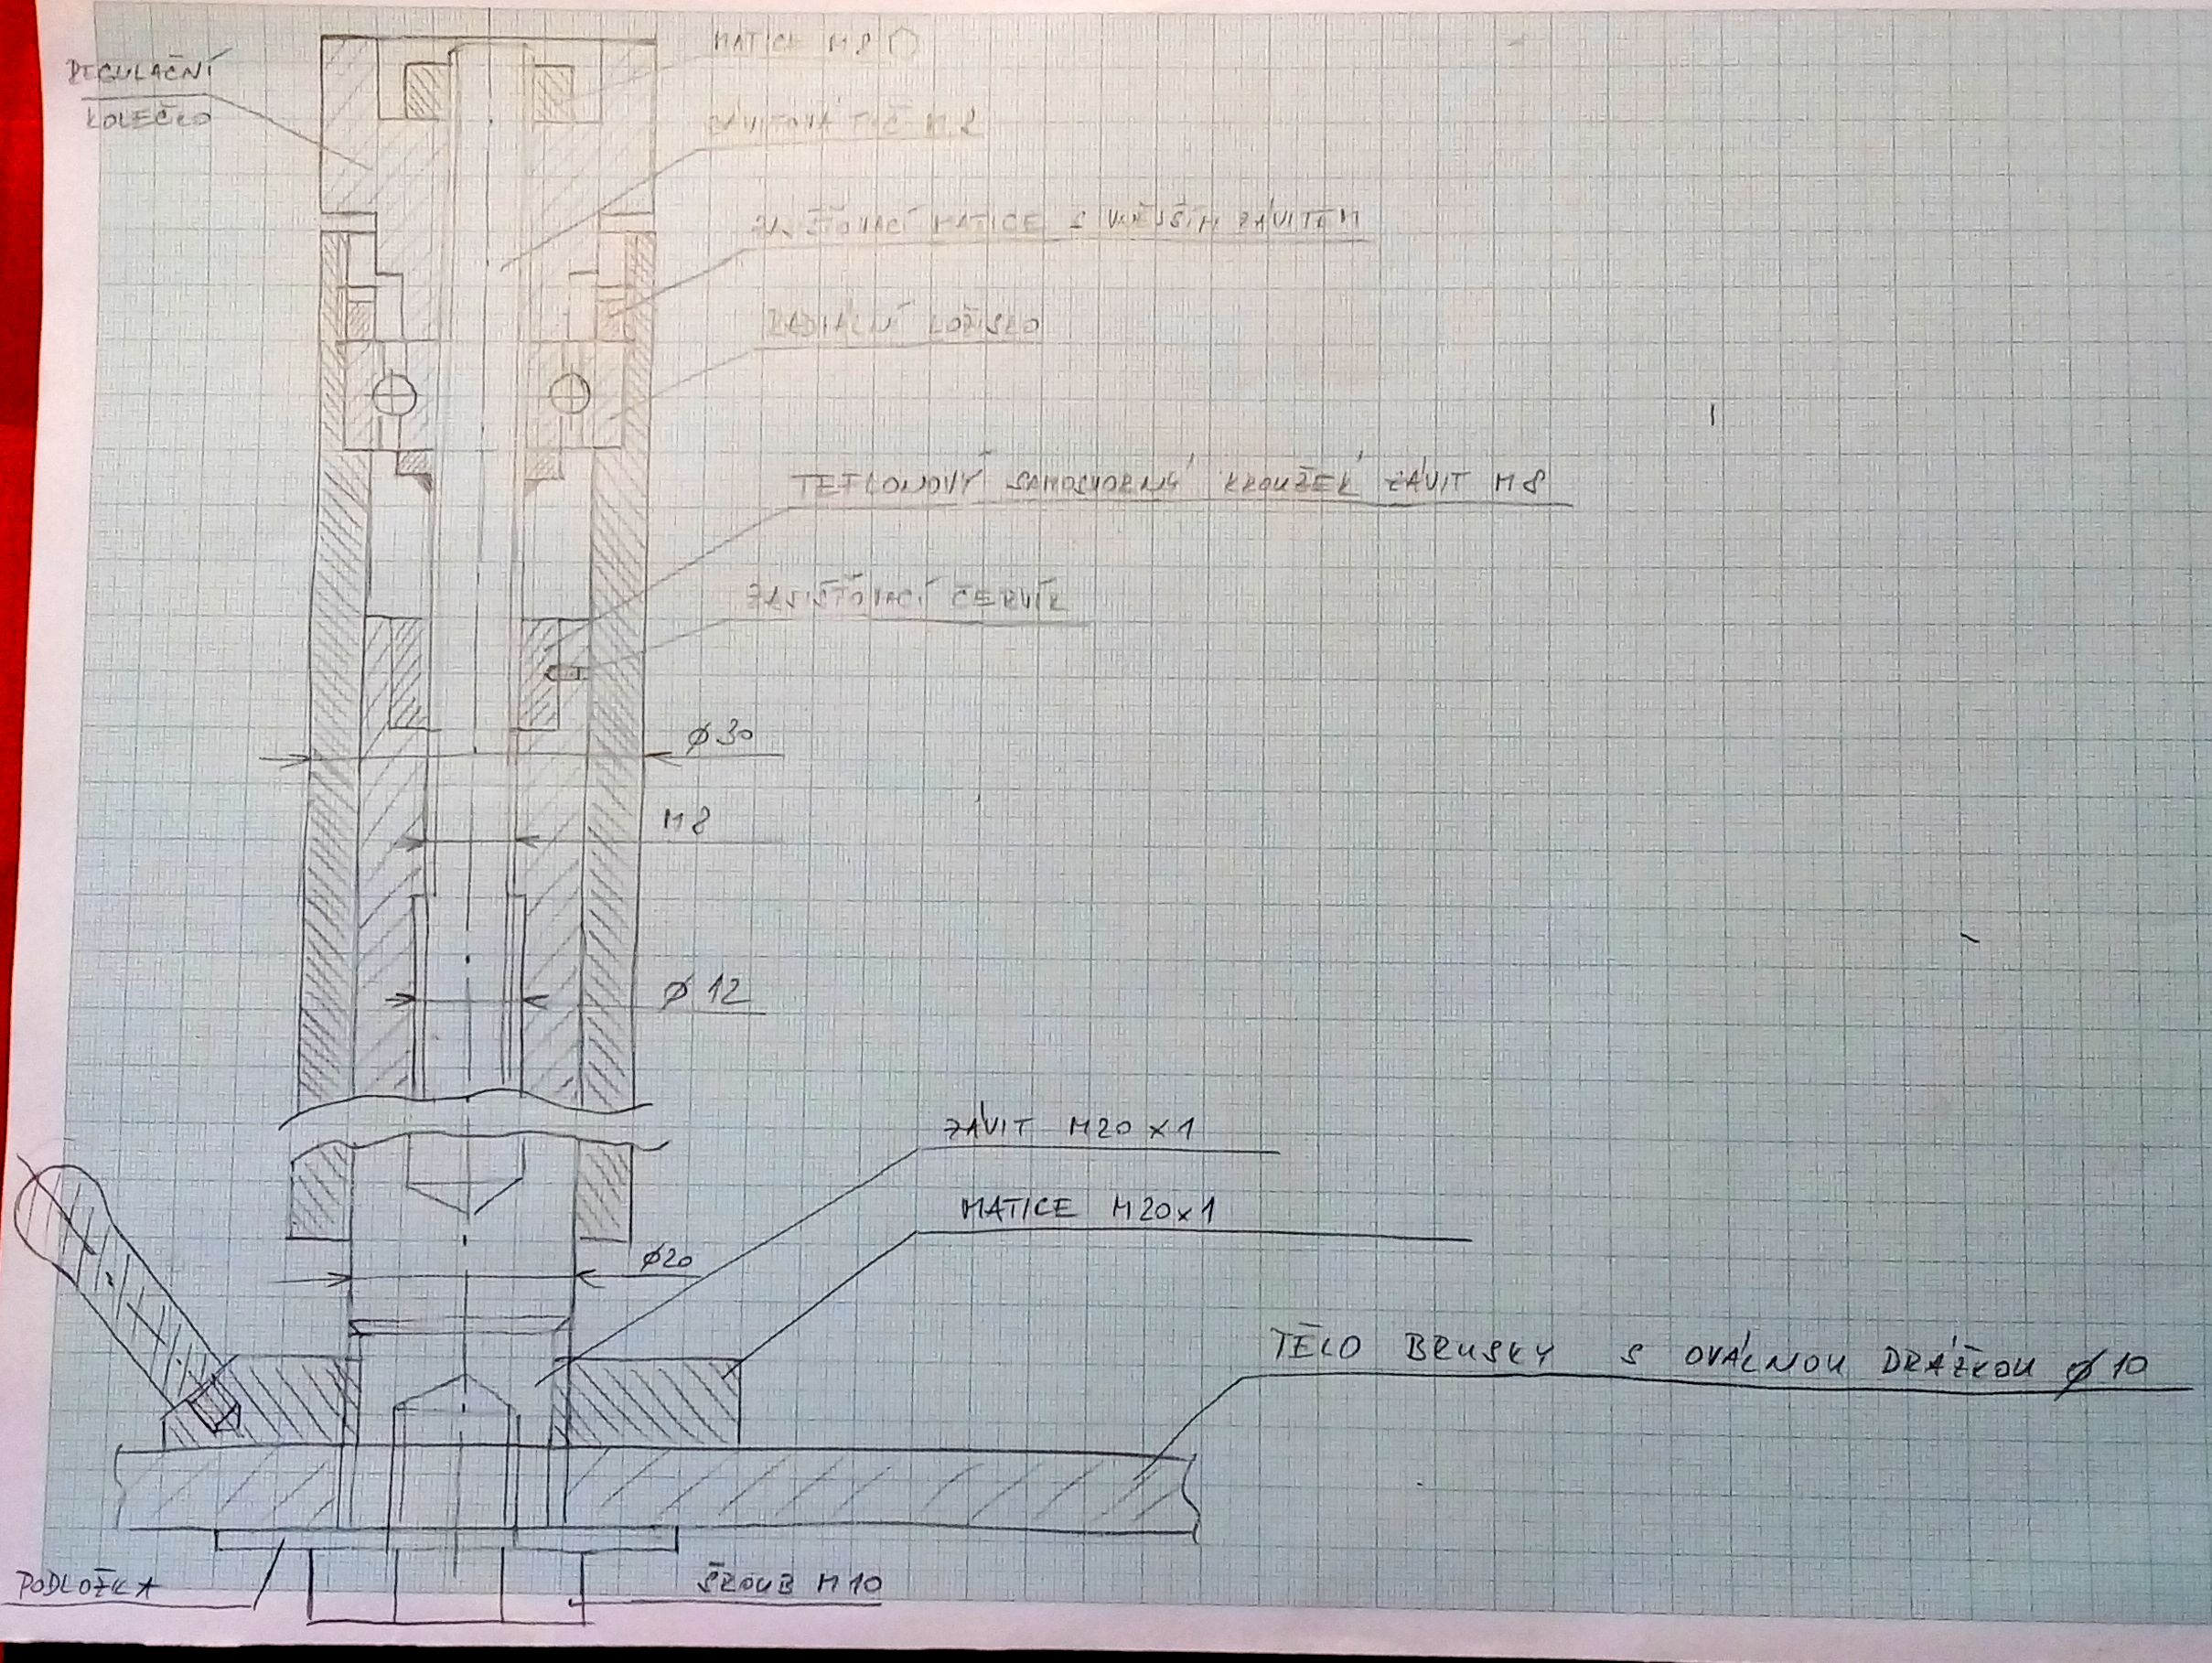 REGULAČNÍ
KOLEČKO
MATICE M8
ZÁVITOVÁ TYČ M8
ZAJIŠŤOVACÍ MATICE S VNĚJŠÍM ZÁVITEM
RADIÁLNÍ LOŽISKO
TEFLONOVÝ SAMOSVORNÝ KROUŽEK ZÁVIT M8
ZAJIŠŤOVACÍ ČERVÍK
ø30
M8
ø12
ZÁVIT M20×1
MATICE M20×1
ø20
TĚLO BRUSKY S OVÁLNOU DRÁŽKOU ø10
PODLOŽKA
ŠROUB M10